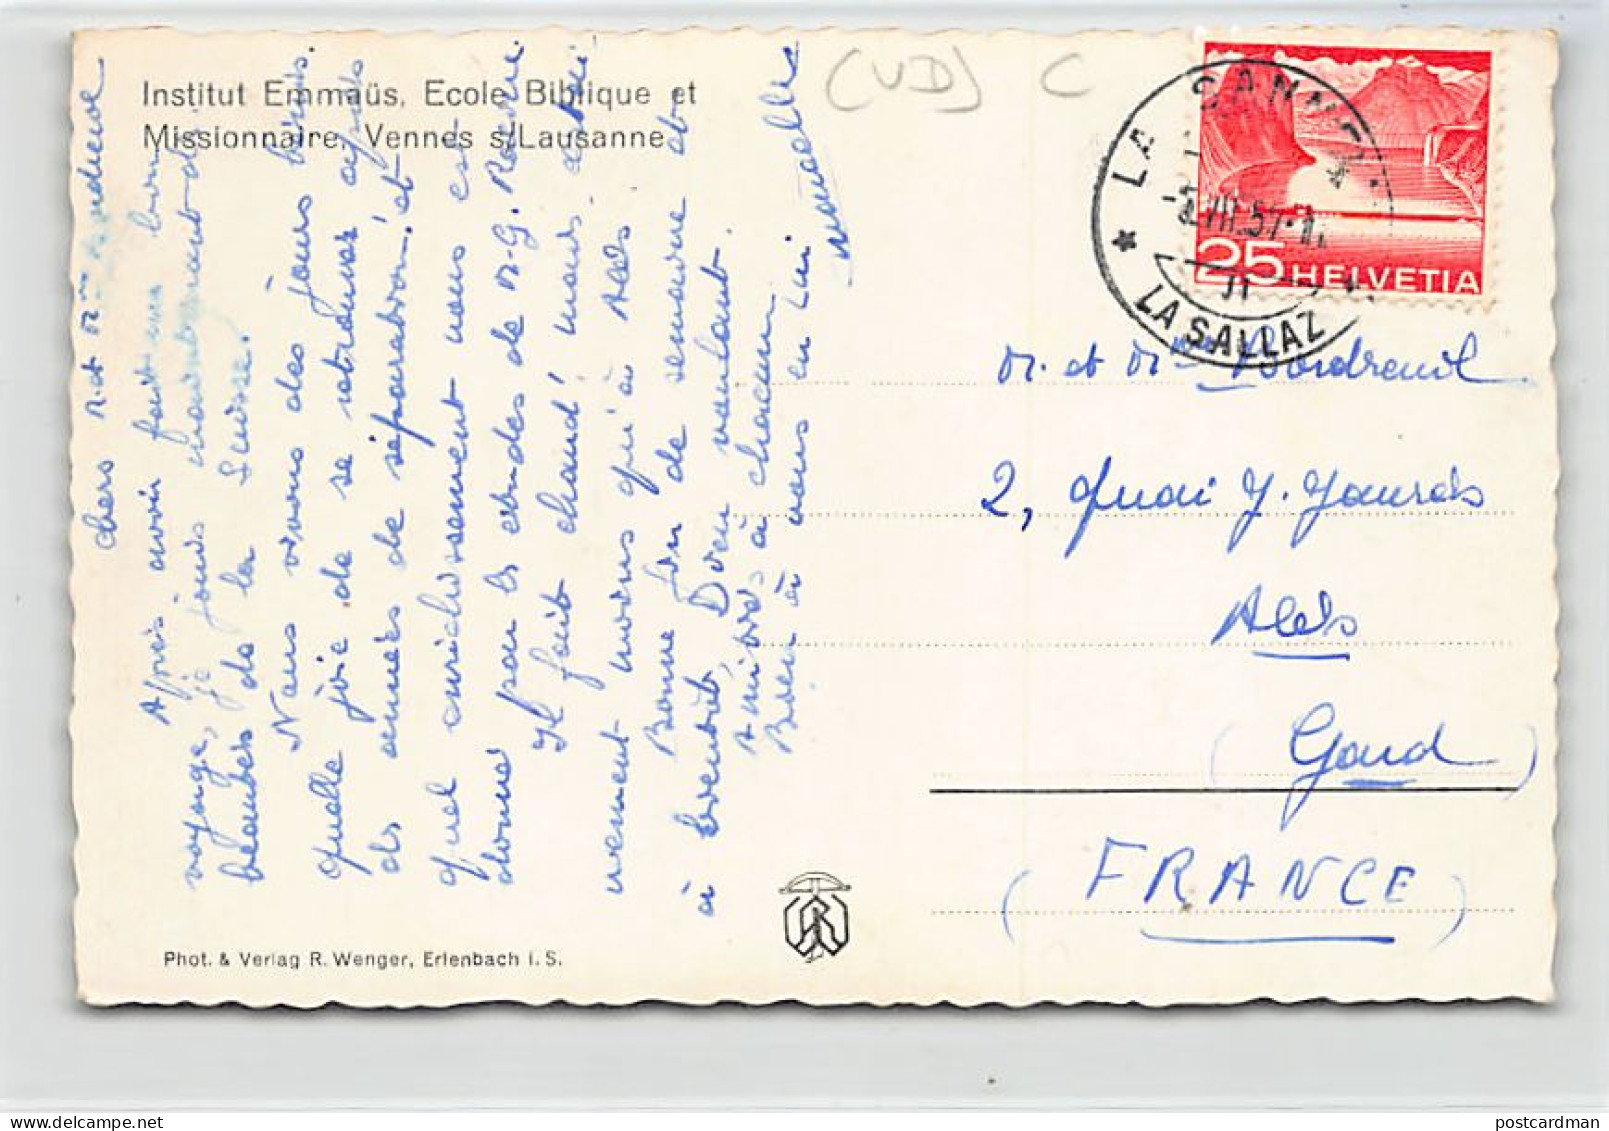 Institut Emmaüs, Ecole Biblique et
Missionnaire, Vennes s/Lausanne
(VD) C
LA SALLAZ
25 HELVETIA
Chers M. et Mme
Après avoir fait un bon
voyage, je jouis maintenant des
beautés de la Suisse.
Nous vivons des jours bénis.
quelle joie de se retrouver après
des années de séparation! et
quel enrichissement nous est
donné par les études de M. G. Racine
Il fait chaud, mais
moins qu'à Alès
Bonne fin de semaine et
à bientôt, Dieu voulant.
Amitiés à chacun
Bien à vous en Lui
M. et Mme
2, Quai J. Jaurès
Alès
(Gard)
(FRANCE)
Phot. & Verlag R. Wenger, Erlenbach i. S.
postcardman